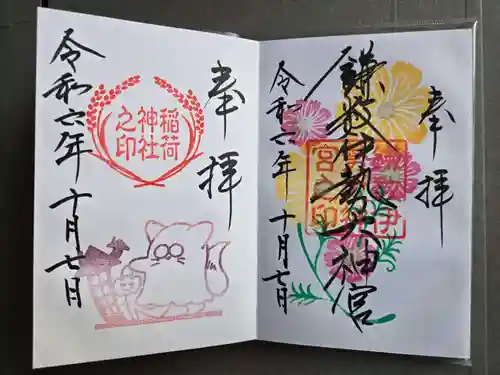 奉拝
鎌数伊勢大神宮
宮之印
令和六年十月七日
奉拝
稲荷
神社
之印
令和六年十月七日